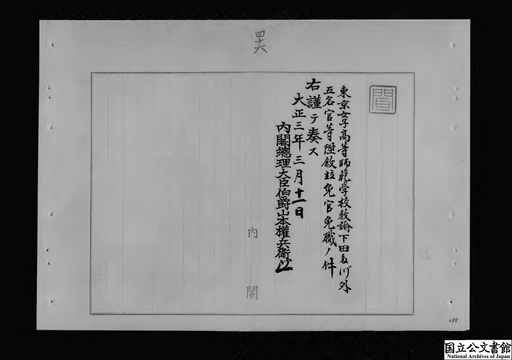 四十六
聞
東京女子高等師範学校教諭下田たづ外
五名官等陞叙並免官免職ノ件
右謹テ奏ス
大正三年三月十一日
内閣總理大臣伯爵山本權兵衛
内閣
国立公文書館
National Archives of Japan